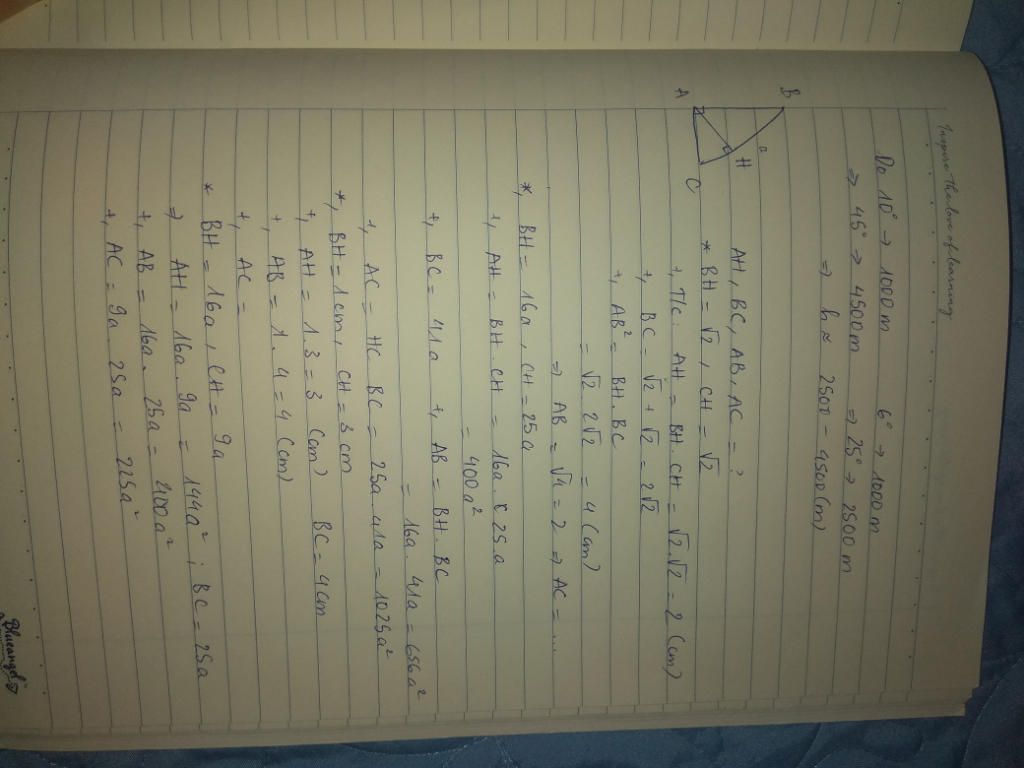 Inspire the love of learning
Do 10° → 1000 m 6° → 1000 m
⇒ 45° → 4500 m ⇒ 25° → 2500 m
⇒ h ≈ 2500 - 4500 (m)
B
H
A
C
AH, BC, AB, AC = ?
* BH = √2, CH = √2
+, T/c: AH = BH . CH = √2 . √2 = 2 (cm)
+, BC = √2 + √2 = 2√2
+, AB² = BH . BC
= √2 . 2√2 = 4 (cm)
⇒ AB = √4 = 2 ⇒ AC = ...
*, BH = 16a, CH = 25a
+, AH = BH . CH = 16a . 25a
= 400a²
+, BC = 41a +, AB = BH . BC
= 16a . 41a = 656a²
+, AC = HC . BC = 25a . 41a = 1025a²
*, BH = 1cm, CH = 3cm
+, AH = 1 . 3 = 3 (cm) BC = 4cm
+, AB = 1 . 4 = 4 (cm)
+, AC =
* BH = 16a, CH = 9a
⇒ AH = 16a . 9a = 144a² ; BC = 25a
+, AB = 16a . 25a = 400a²
+, AC = 9a . 25a = 225a²
Blueangel